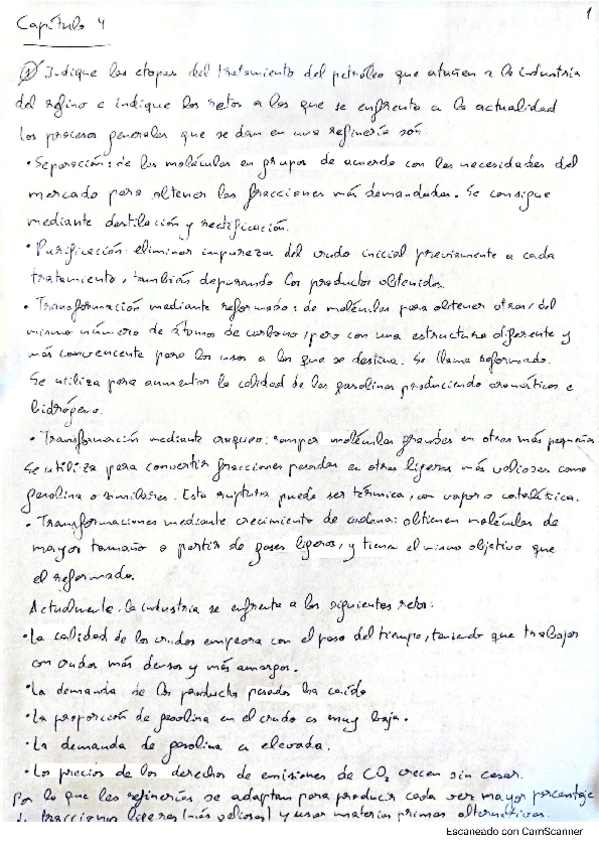 1
Capítulo 4
① Indique las etapas del tratamiento del petróleo que atañen a la industria
del refino e indique los retos a los que se enfrenta a la actualidad
Los procesos generales que se dan en una refinería son:
• Separación: de las moléculas en grupos de acuerdo con las necesidades del
mercado para obtener las fracciones más demandadas. Se consigue
mediante destilación y rectificación.
• Purificación: eliminar impurezas del crudo inicial previamente a cada
tratamiento, también depurando los productos obtenidos.
• Transformación mediante reformado: de moléculas para obtener otras, del
mismo número de átomos de carbono, pero con una estructura diferente y
más convencente para los usos a los que se destina. Se llama reformado.
Se utiliza para aumentar la calidad de las gasolinas produciendo aromáticos e
hidrógeno.
• Transformación mediante craqueo: romper moléculas grandes en otras más pequeñas
Se utiliza para convertir fracciones pesadas en otras ligeras más valiosas como
gasolina o similares. Esta ruptura puede ser térmica, con vapor o catalítica.
• Transformaciones mediante crecimiento de cadena: obtienen moléculas de
mayor tamaño a partir de gases ligeros, y tiene el mismo objetivo que
el reformado.
Actualmente, la industria se enfrenta a los siguientes retos:
• La calidad de los crudos empeora con el paso del tiempo, teniendo que trabajar
con crudos más densos y más amargos.
• La demanda de los productos pesados ha caído
• La proporción de gasolina en el crudo es muy baja.
• La demanda de gasolina es elevada.
• Los precios de los derechos de emisiones de CO₂ crecen sin cesar.
Por lo que las refinerías se adaptan para producir cada vez mayor porcentaje
fracciones ligeras (más valiosas) y usar materias primas alternativas.
Escaneado con CamScanner